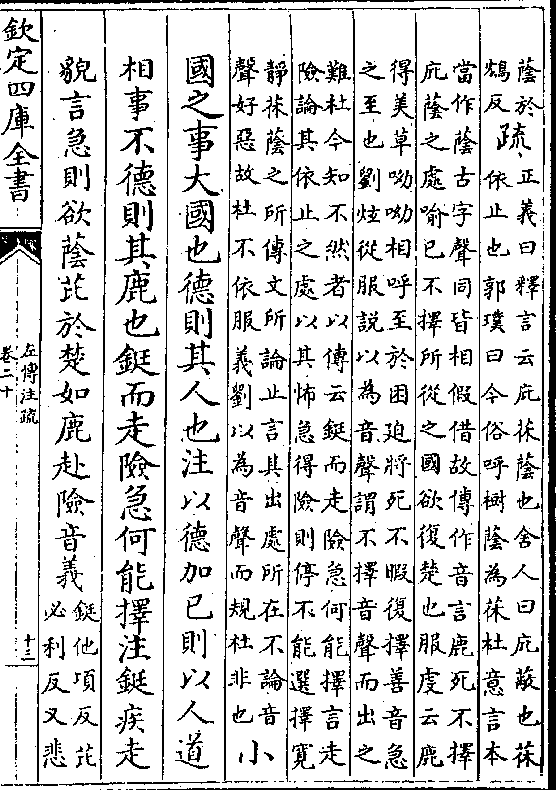 蔭於
鴆反
疏
正義曰釋言云庇茠蔭也舍人曰庇蔽也茠
依止也郭璞曰今俗呼樹蔭為茠杜意言本
當作蔭古字聲同皆相假借故傳作音言鹿死不擇
庇蔭之處喻已不擇所從之國欲復楚也服虔云鹿
得美草呦呦相呼至於困迫將死不暇復擇善音急
之至也劉炫從服說以為音聲謂不擇音聲而出之
難杜今知不然者以傳云鋌而走險急何能擇言走
險論其依止之處以其怖急得險則停不能選擇寛
靜茠蔭之所傳文所論止言其出處所在不論音
聲好惡故杜不依服義劉以為音聲而規杜非也
小
國之事大國也德則其人也注以德加已則以人道
相事不德則其鹿也鋌而走險急何能擇注鋌疾走
貌言急則欲蔭芘於楚如鹿赴險音義
鋌他項反芘
必利反又悲
欽定四庫全書
左傳注疏
卷二十
十三